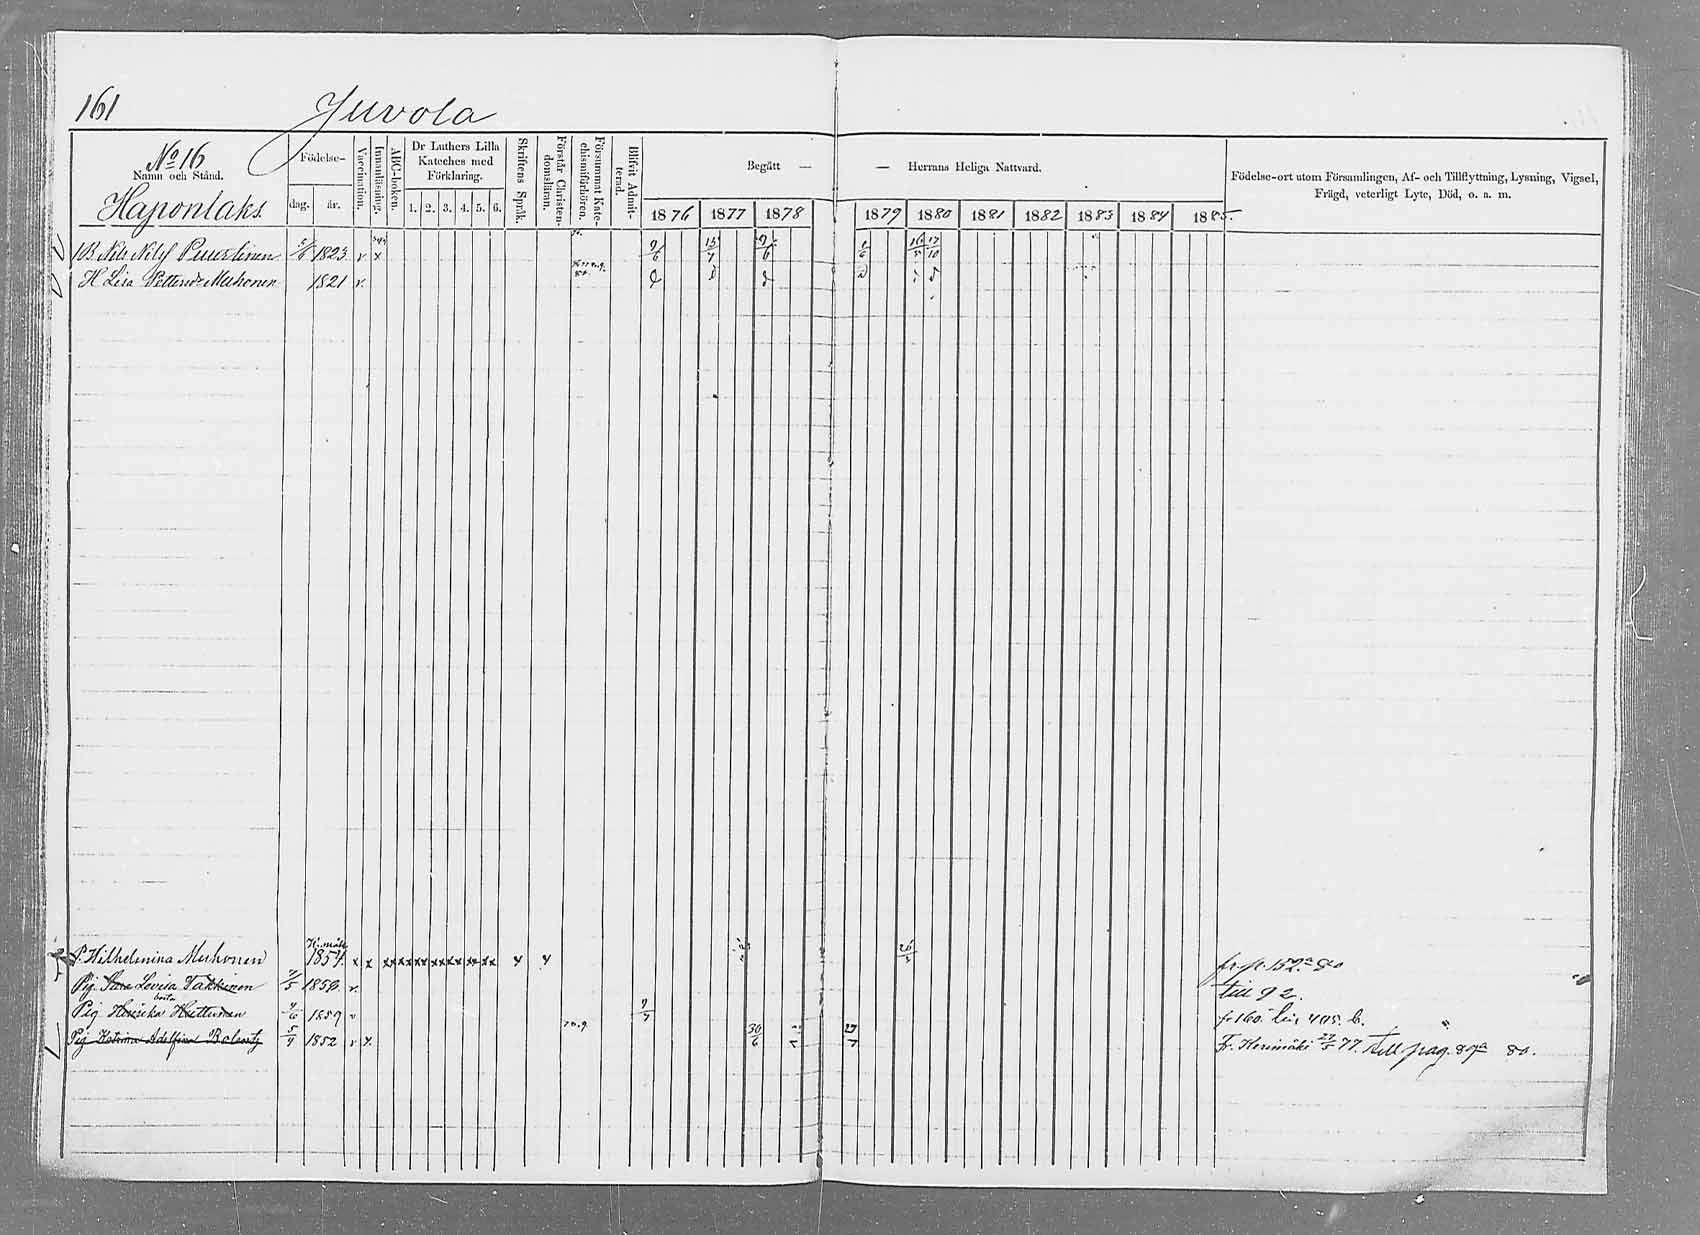 161 Juvola
No 16
Namn och Stånd.
Haponlaks.
Födelse-
dag. år.
Vaccination.
Innanläsning.
ABC-boken.
Dr Luthers Lilla
Kateches med
Förklaring.
1. 2. 3. 4. 5. 6.
Skriftens Språk.
Förstår Christen-
domsläran.
Försummat Kate-
chismiförhören.
Blifvit Admit-
terad.
Begått — — Herrans Heliga Nattvard.
1876 1877 1878 1879 1880 1881 1882 1883 1884 1885.
Födelse-ort utom Församlingen, Af- och Tillflyttning, Lysning, Vigsel,
Frägd, veterligt Lyte, Död, o. a. m.
B. Nils Nilsf Puustinen 5/6 1823 v x 9/6 15/7 9/6 16/5 17/10
H Lisa Pettersd. Muhonen 1821 v.
P. Wilhelmina Muhonen 1854. x x x x x x x x x x x x fr. p. 152
Pig. Sara Lovisa Takkinen 1/5 1859. v. till 92.
borta
Pig Henrika Huttunen 4/6 1859 v 9/7 fr 160. 405. b.
Pig Katrina Adolfina 5/4 1852 v x. 30/6 29/7 Fr. Kerimäki 27/5 77. till pag. 80.